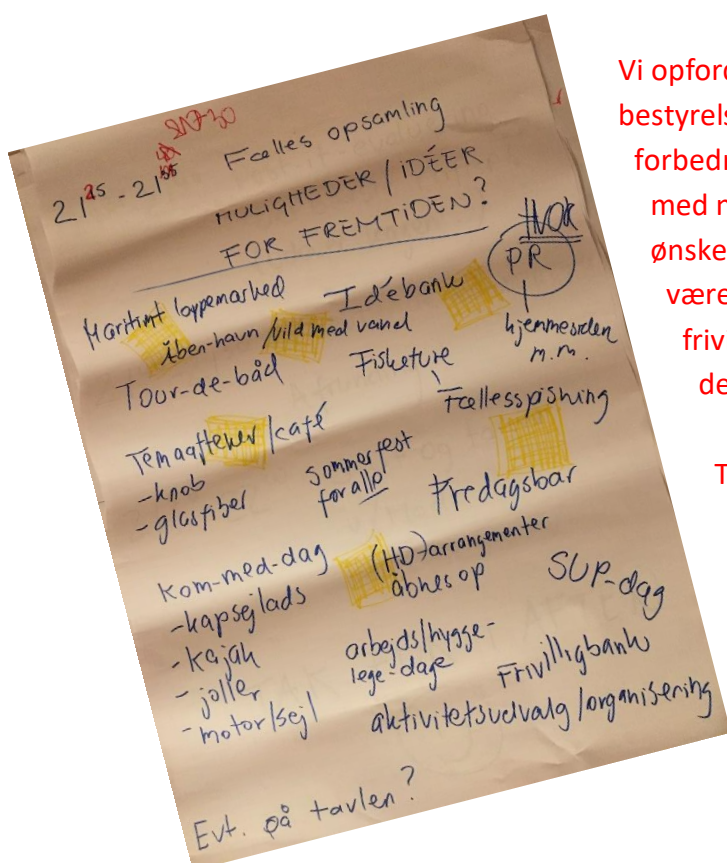 21²⁵ - 21⁵⁵ Fælles opsamling
MULIGHEDER / IDÉER
FOR FREMTIDEN?
HVOR
PR
hjemmesiden
m.m.
Maritimt loppemarked
Idébank
Åben-havn / Vild med vand
Tour-de-båd
Fisketure
Fællesspisning
Temaaftener / café
- knob
- glasfiber
Sommerfest
for alle
Fredagsbar
Kom-med-dag
- kapsejlads
- kajak
- joller
- motor/sejl
(HD)-arrangementer
åbnes op
SUP-dag
arbejds/hygge-
lege-dage
Frivilligbank
aktivitetsudvalg / organisering
Evt. på tavlen?
Vi opford
bestyrels
forbedr
med n
ønske
være
friv
de
T